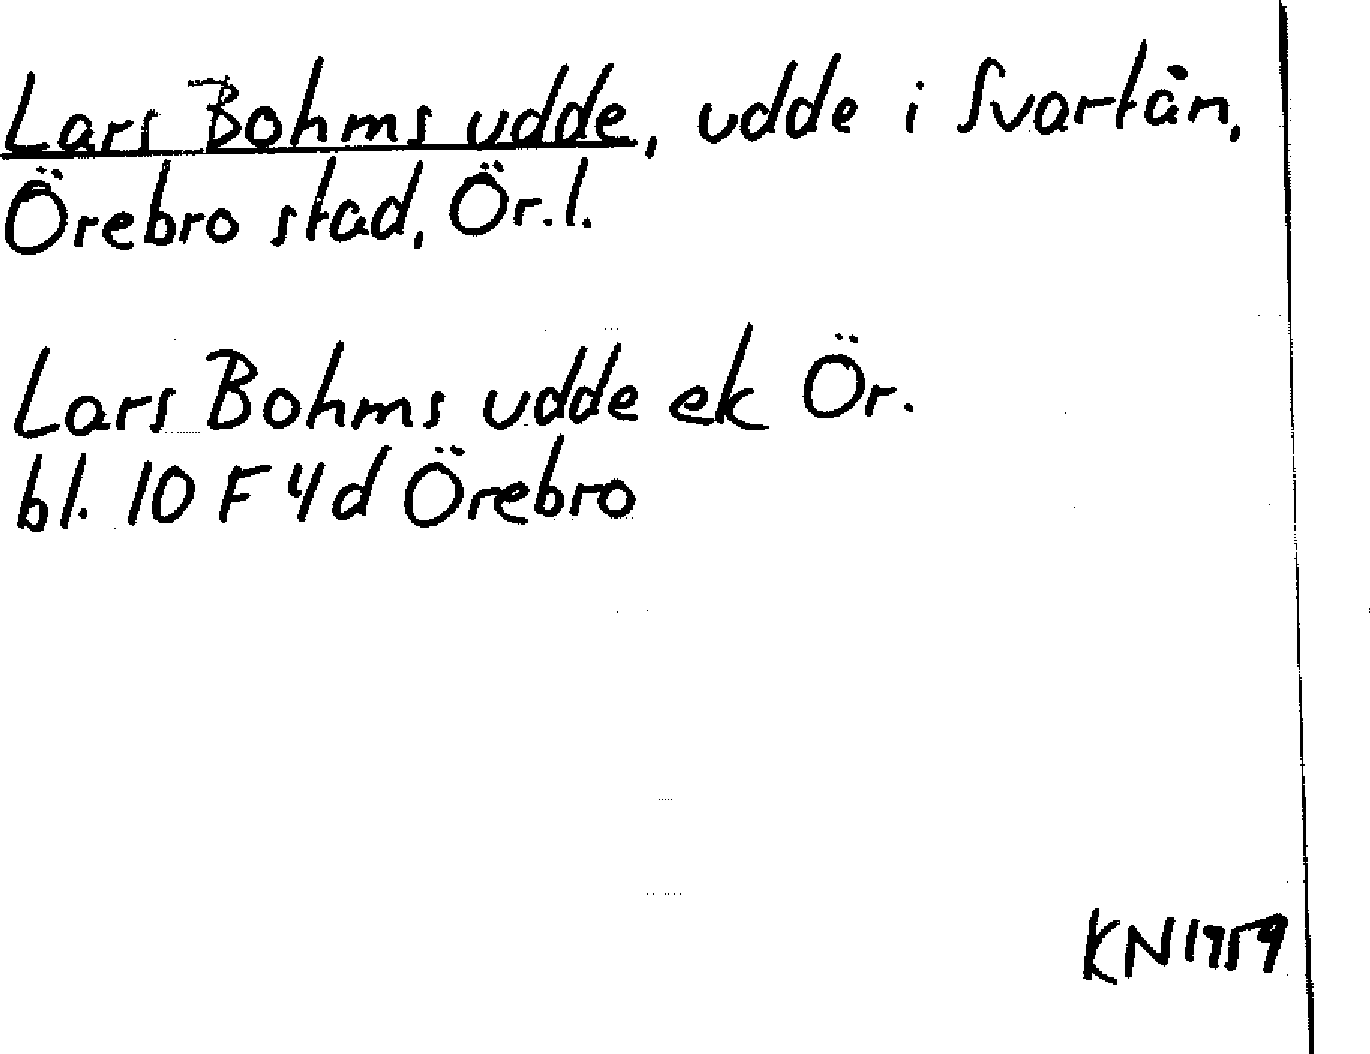 Lars Bohms udde, udde i Svartån,
Örebro stad, Ör. l.
Lars Bohms udde ek Ör.
bl. 10 F 4d Örebro
KN 1959